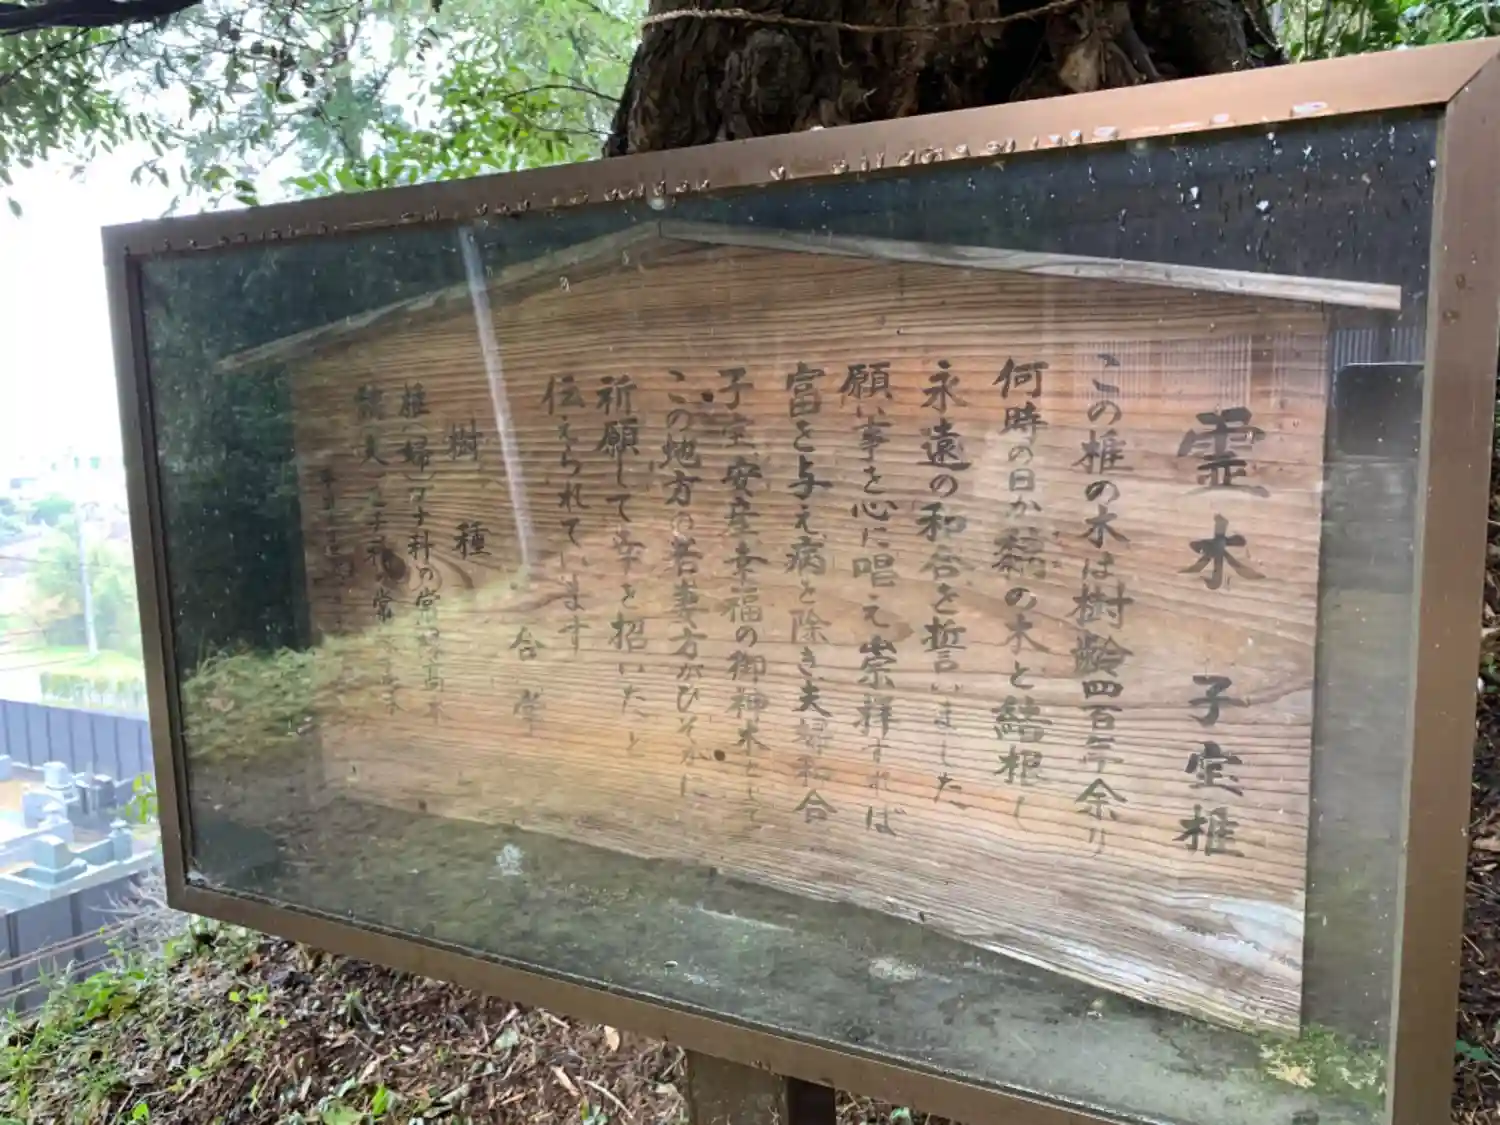 霊木 子宝椎
この椎の木は樹齢四百年余り
何時の日か の木と結根し
永遠の和合を誓いました
願い事を心に唱え崇拝すれば
富を与え病を除き夫婦和合
子宝安産幸福の御神木として
この地方の若妻方がひそかに
祈願して幸を招いたと
伝えられています
合掌
樹種
椎(婦)ブナ科の常緑高木